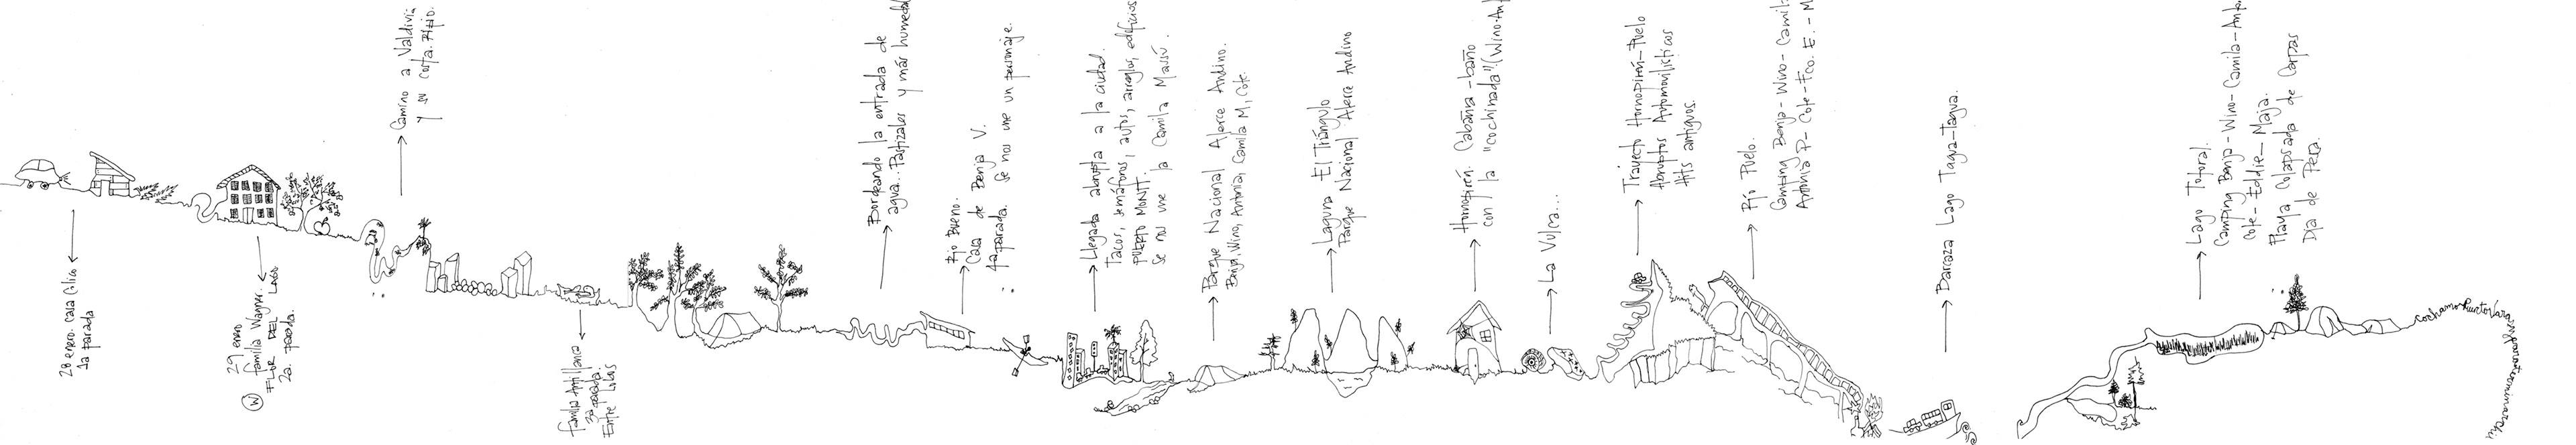 28 enero. casa
1a parada
29 enero
familia Wagner
FLOR DEL LAGO
2a. parada.
W
Camino a Valdivia
y su costa.
familia Antillanca
3a parada.
Entre Lolos
Bordeando la entrada de
agua... Pastizales y más humedal
Río Bueno.
Casa de Benja V.
4a parada. Se nos une un personaje.
Llegada abrupta a la ciudad.
Tacos, semáforos, autos, arreglos, edificios
PUERTO MONTT.
Se nos une la Camila Massú.
Parque Nacional Alerce Andino.
Benja, Wino, Antonia, Camila M, Cote.
Laguna El Triángulo
Parque Nacional Alerce Andino
Hornopirén. Cabaña-baño
con la "cochinada" (Wino-Ant
La Vulca...
Trayecto Hornopirén-Puelo
Abruptos Automovilísticos
Hits antiguos.
Río Puelo.
Camping Benja-Wino-Camil
Antonia P- Cote-Fco. E.- M
Barcaza Lago Tagua-tagua.
Lago Totoral.
Camping Benja-Wino-Camila-Ant
Cote- Eddie- Maja.
Playa Colapsada de Carpas
Día de Pesca.